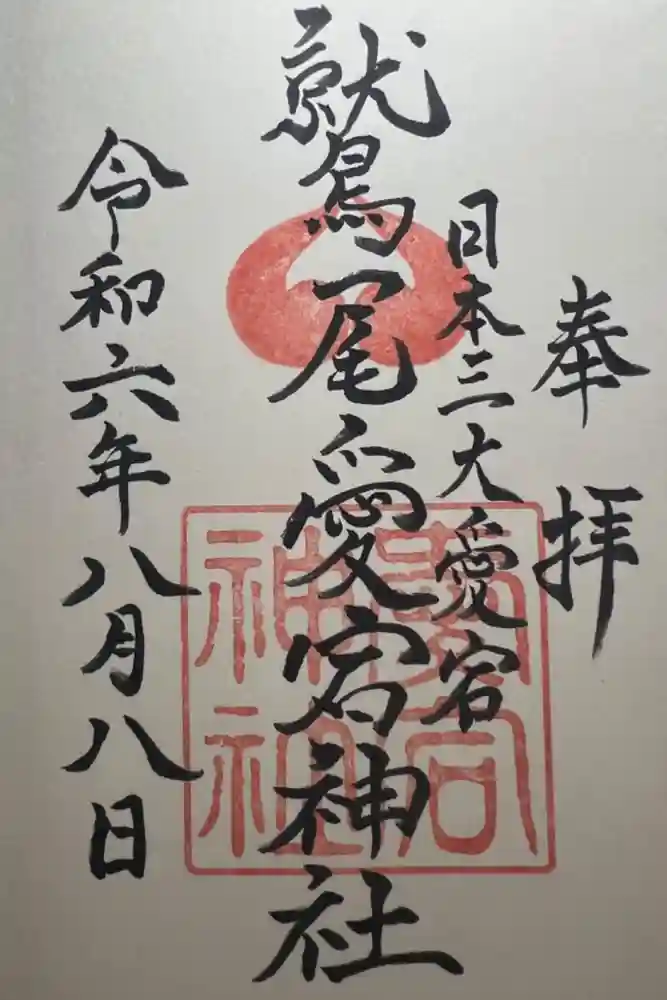 奉拝
日本三大愛宕
鷲尾愛宕神社
令和六年八月八日
愛宕神社